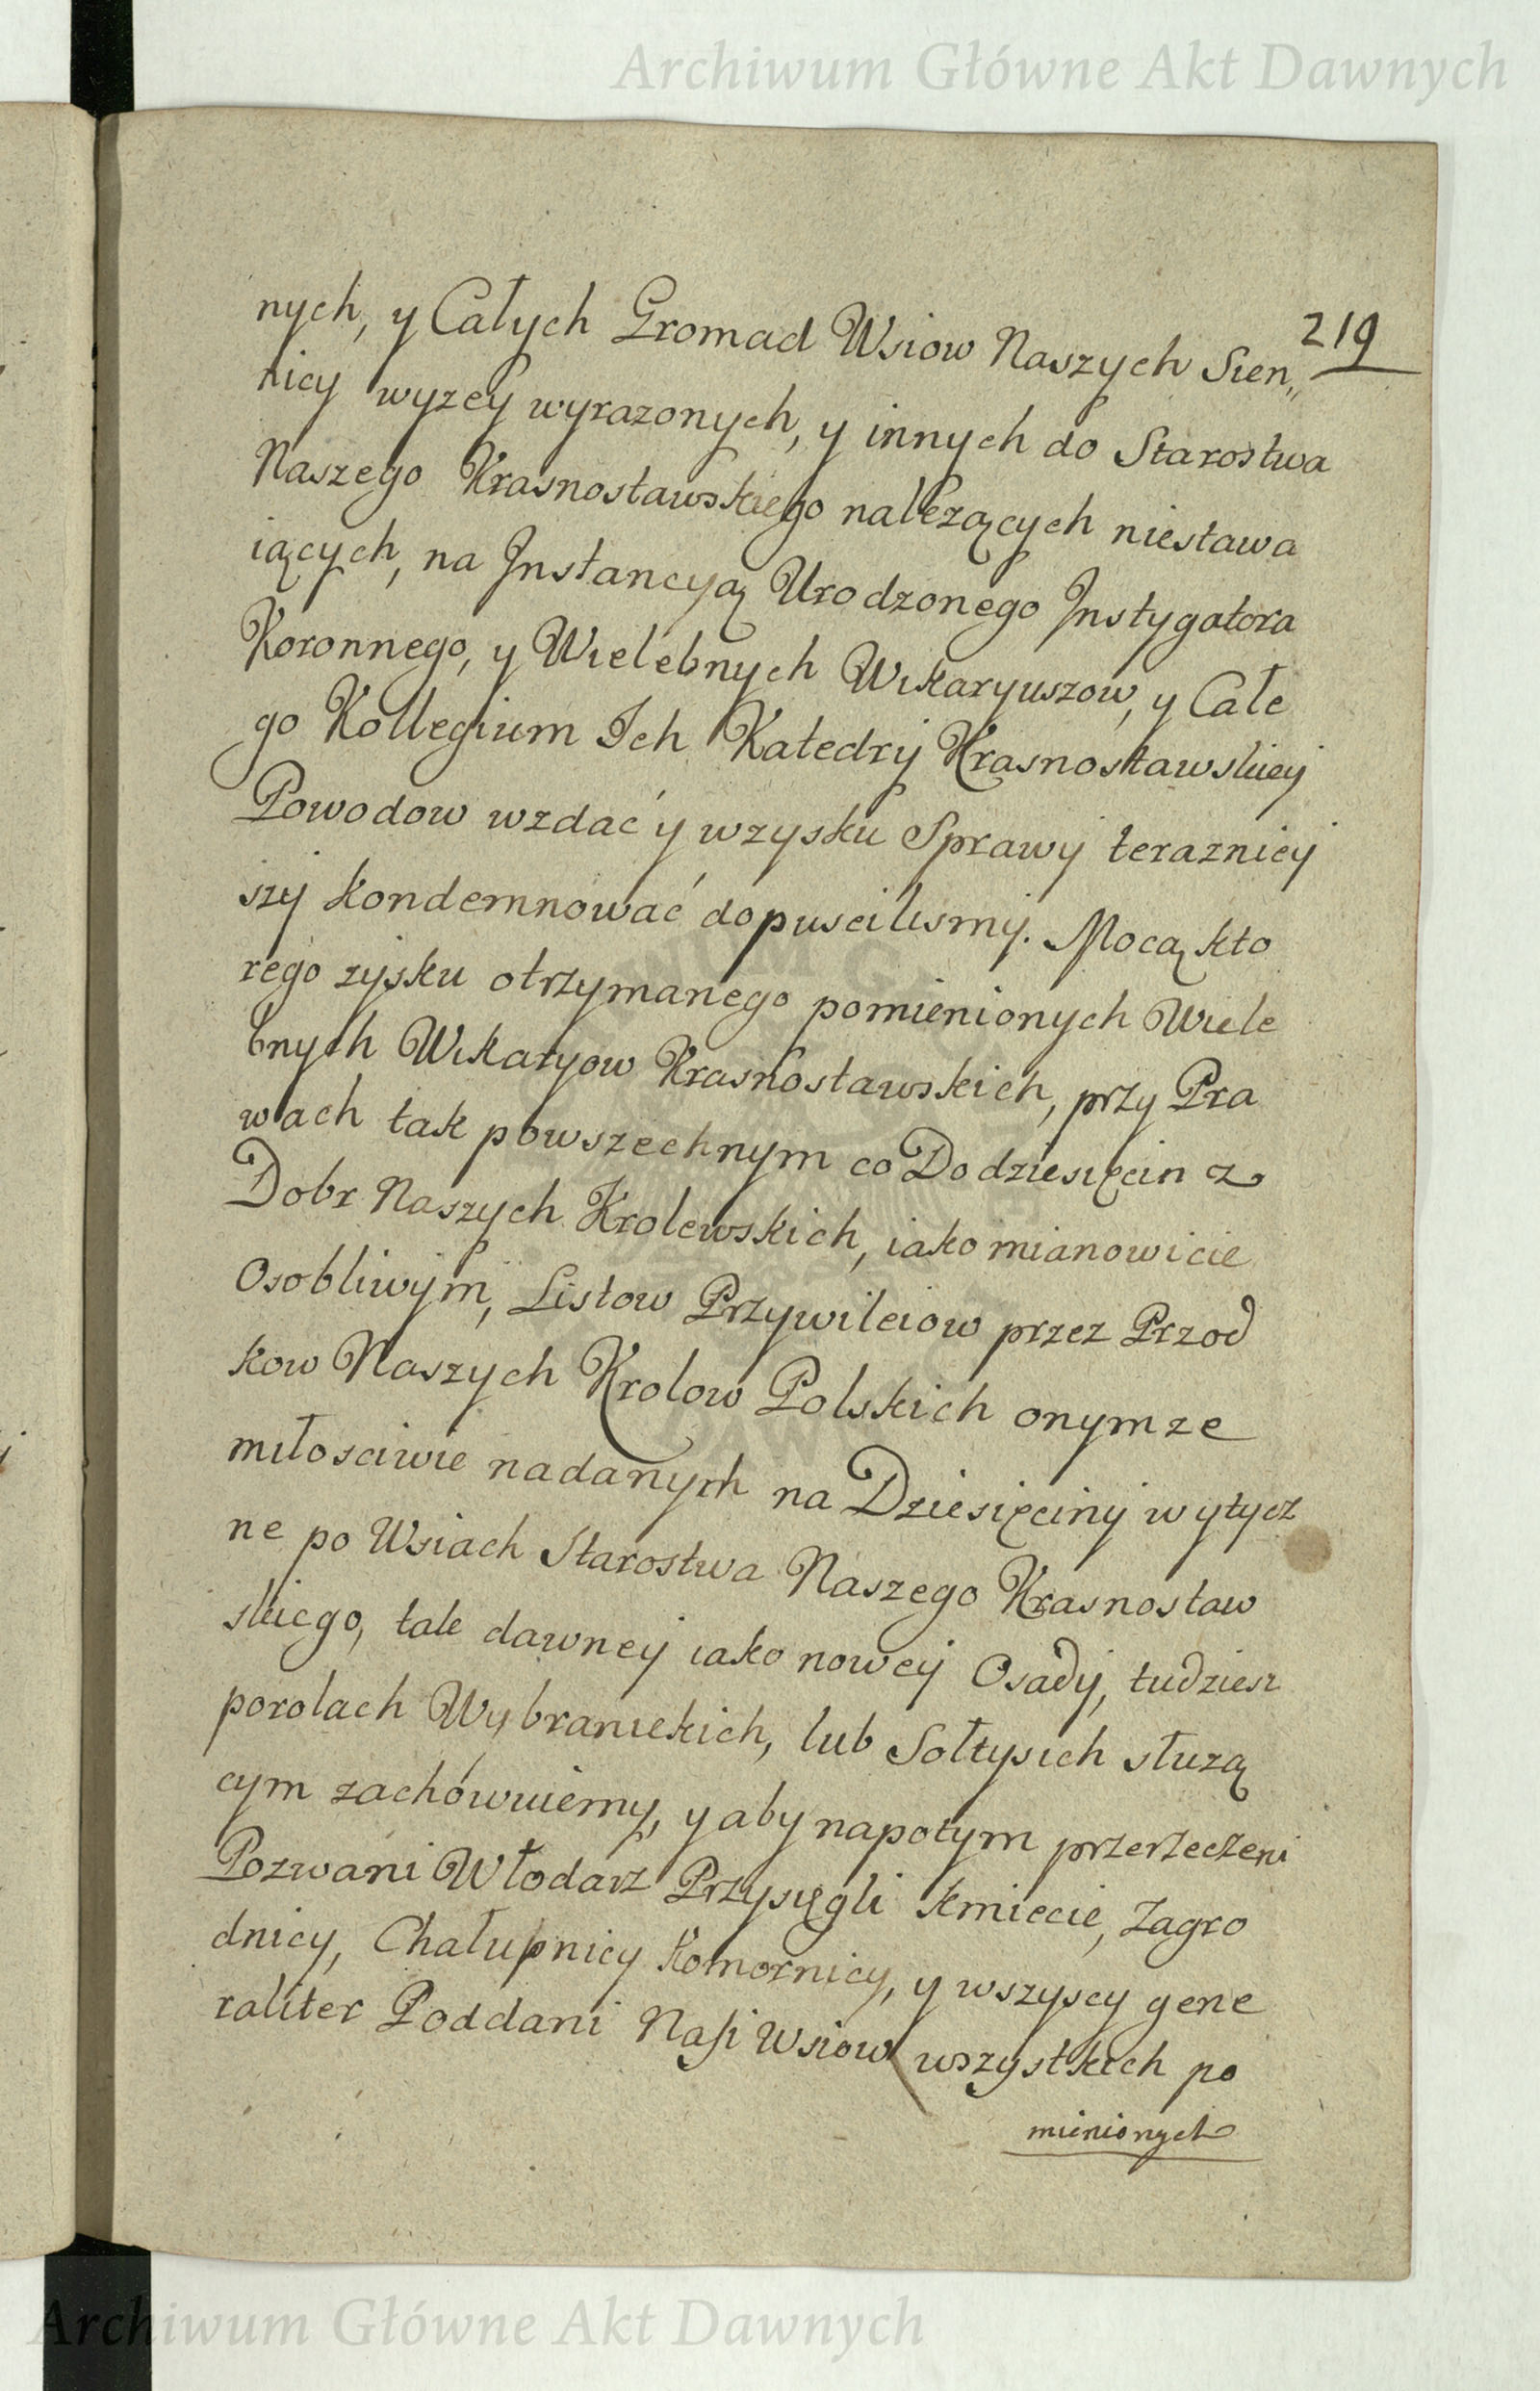 Archiwum Główne Akt Dawnych
219
nych, y Całych Gromad Wsiow Naszych Sien„
nicy wyzey wyrazonych, y innych do Starostwa
Naszego Krasnostawskiego nalezących niestawa
iących, na Instancyą Urodzonego Instygatora
Koronnego, y Wielebnych Wikaryuszow, y Całe
go Kollegium Ich Katedry Krasnostawskiey
Powodow wzdać y wzysku Sprawy terazniey
szy kondemnować dopuscilismy. Mocą kto
rego zysku otrzymanego pomienionych Wiele
bnych Wikaryow Krasnostawskich, przy Pra
wach tak powszechnym co Do dziesięcin z
Dobr Naszych Krolewskich, iako mianowicie
Osobliwym, Listow Przywileiow przez Przod
kow Naszych Krolow Polskich onymze
miłosciwie nadanych na Dziesięciny wytycz
ne po Wsiach Starostwa Naszego Krasnostaw
skiego, tak dawney iako nowey Osady, tudziesz
porolach Wybranickich, lub Sołtysich słuzą
cym zachówuiemy, y aby napotym przerzeczeni
Pozwani Włodarz Przysięgli kmiecie, Zagro
dnicy, Chałupnicy Komornicy, y wszyscy gene
raliter Poddani Nasi Wsiow wszystkich po
mienionych
Archiwum Główne Akt Dawnych